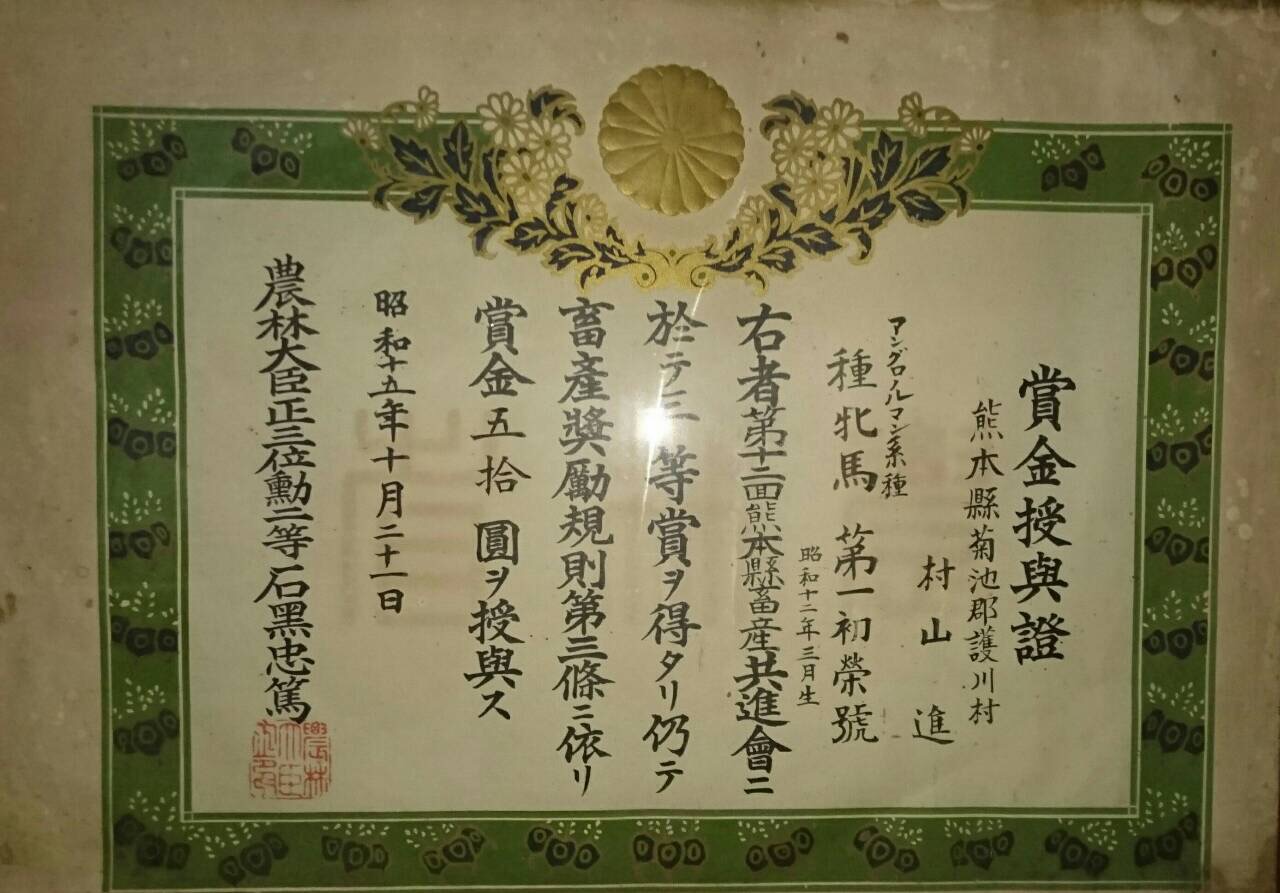 賞金授與證
熊本縣菊池郡護川村
村山進
アングロノルマン系種
種牝馬第一初榮號
昭和十二年三月生
右者第十二囬熊本縣畜產共進會ニ
於テ三等賞ヲ得タリ仍テ
畜產奬勵規則第三條ニ依リ
賞金五拾圓ヲ授與ス
昭和十五年十月二十一日
農林大臣正三位勳二等石黑忠篤
農林大臣之印